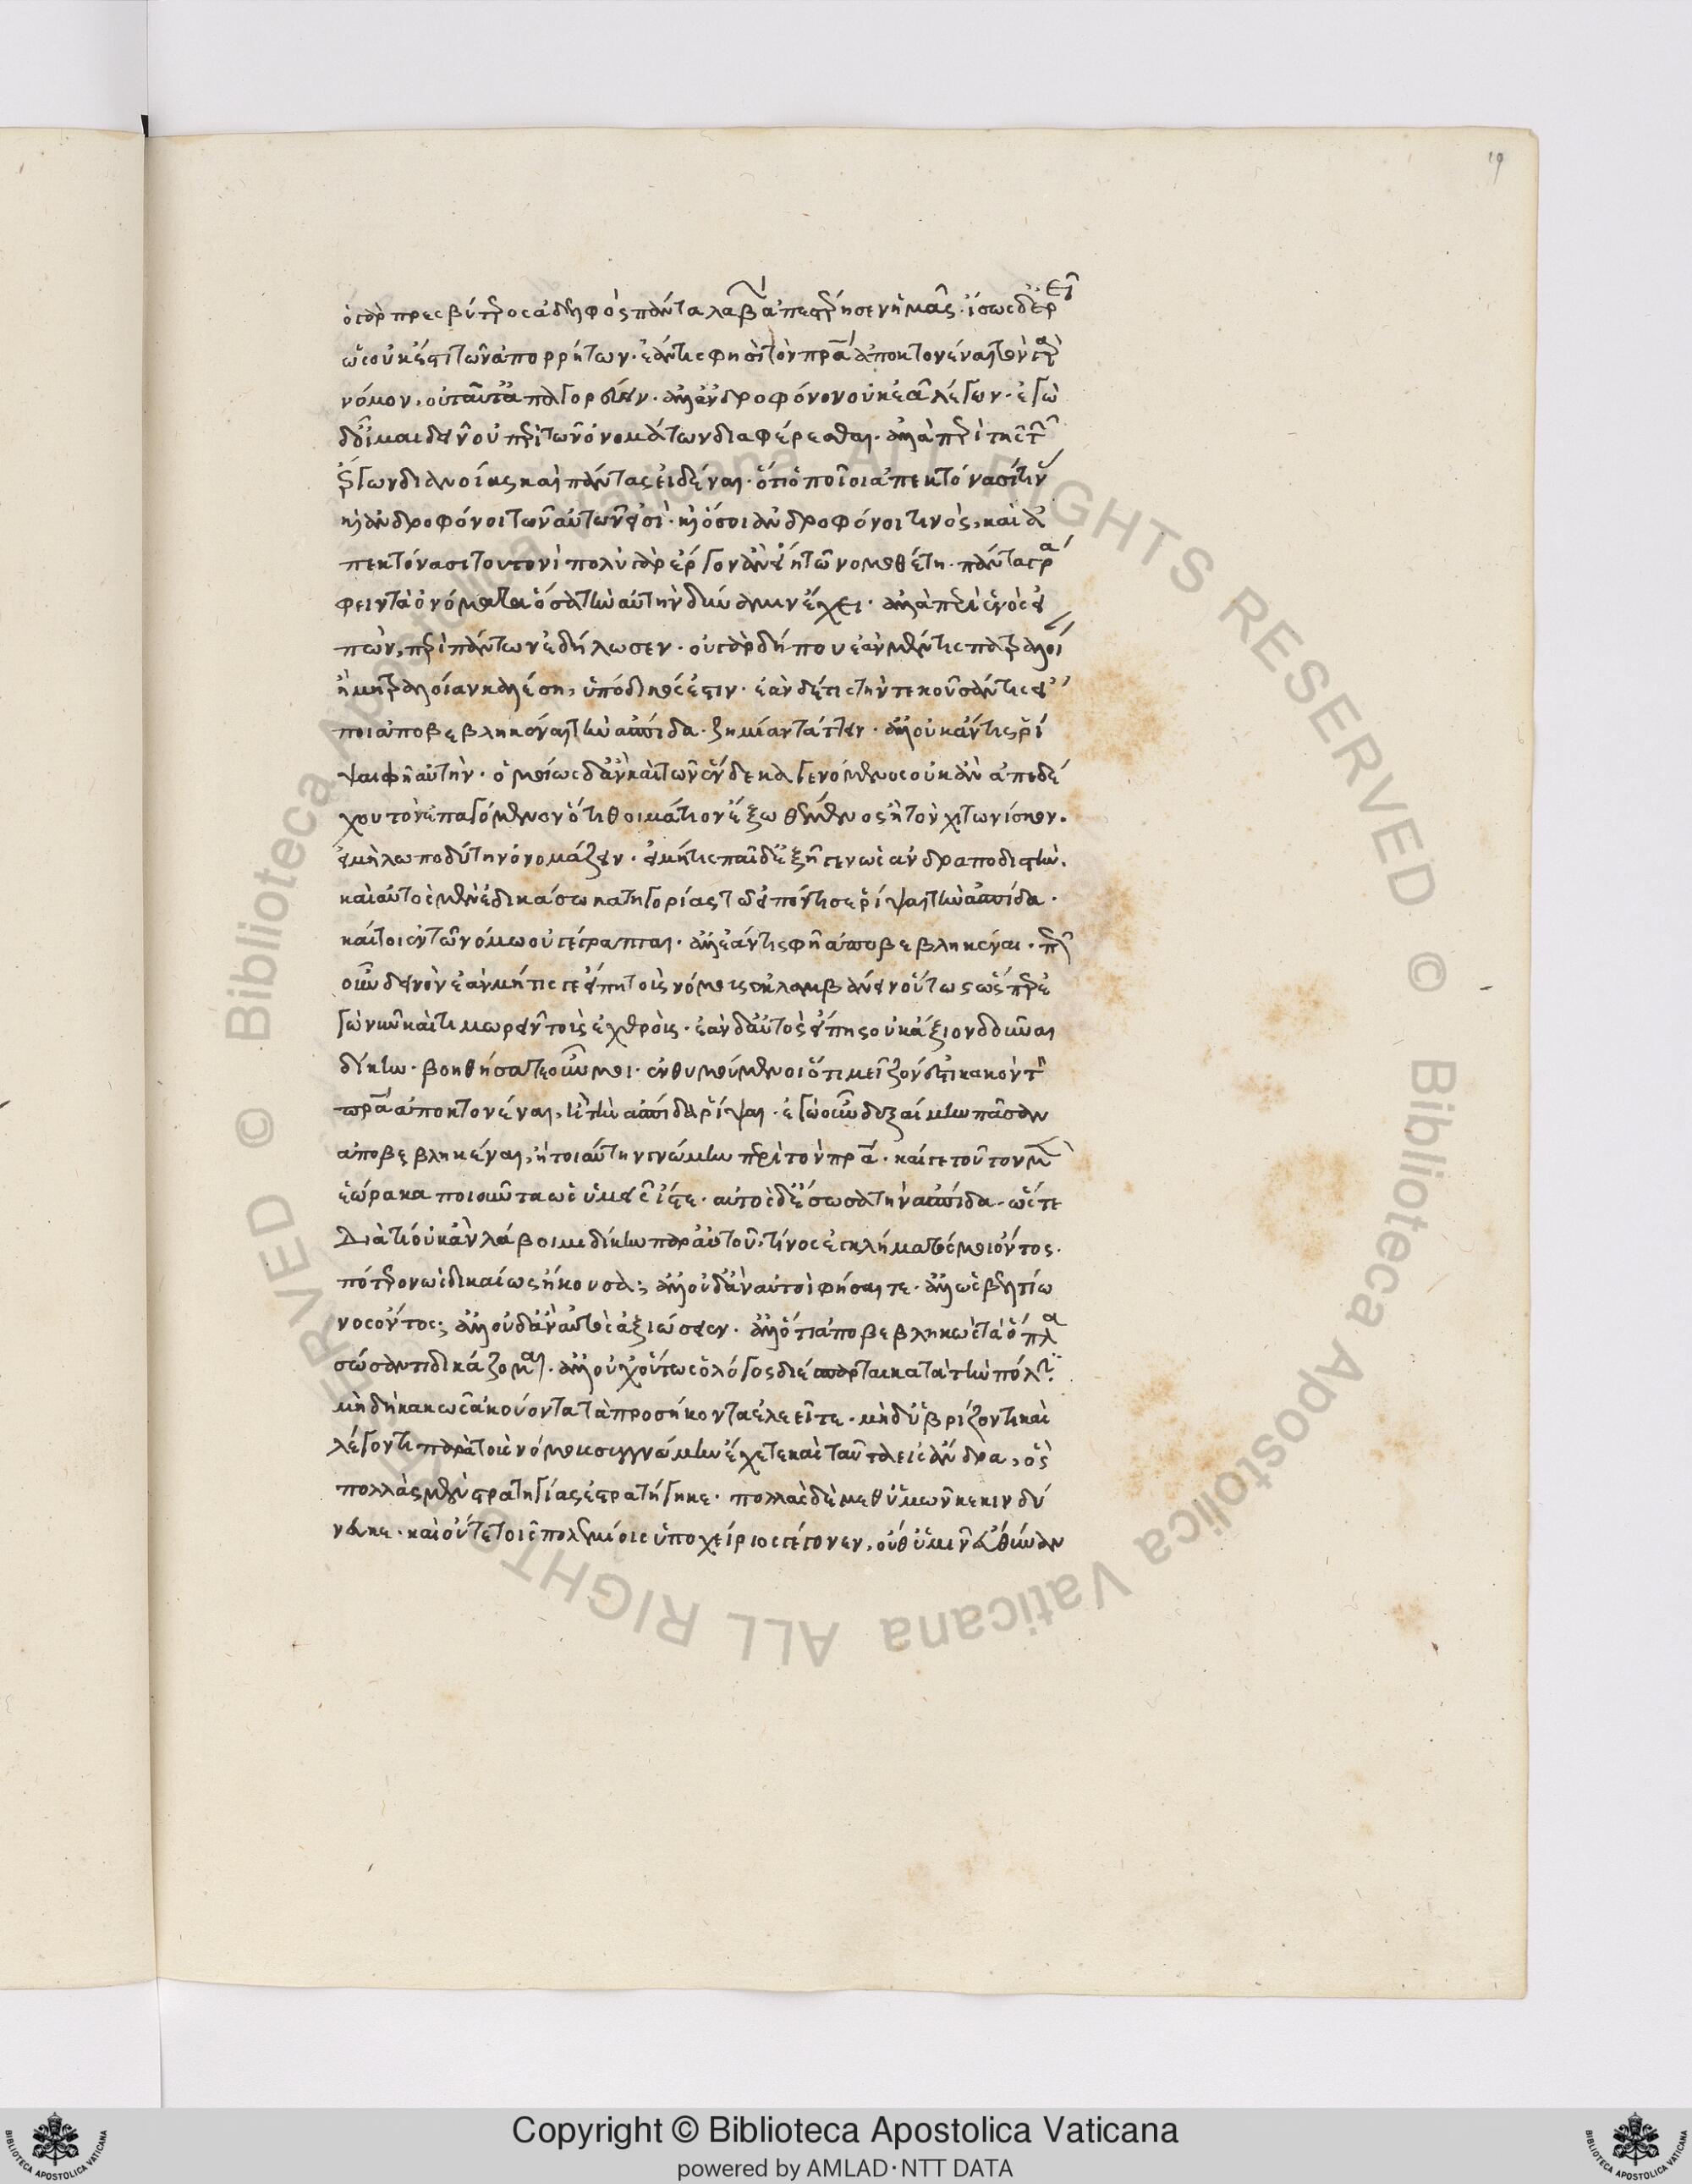 19
ὁ γὰρ πρεσβύτερος ἀδελφὸς πάντα λαβὼν ἀπεστέρησεν ἡμᾶς· ἴσως δ' ἐρεῖ
ὡς οὐκ ἔστι τῶν ἀπορρήτων· ἐάν τις φησὶ τὸν πρα ἀπεκτονέναι τὸν γὰρ
νόμον, οὐ ταῦτα ἀπαγορεύειν· ἀλλ' ἀνδροφόνον οὐκ ἐᾶν λέγειν· ἐγὼ
δ' οἶμαι δεῖν οὐ περὶ τῶν ὀνομάτων διαφέρεσθαι· ἀλλὰ περὶ τῆς τῶν
ἔργων διανοίας καὶ πάντας εἰδέναι· ὅτι ὁποῖοι ἀπεκτόνασί τινα
καὶ ἀνδροφόνοι τῶν αὐτῶν εἰσί· καὶ ὅσοι ἀνδροφόνοι τινὸς, καὶ ἀ
πεκτόνασι τουτονὶ πολὺ γὰρ ἔργον ἂν εἴη τῶ νομοθέτη· πάντα γρά
φειν τὰ ὀνόματα ὅσα τὴν αὐτὴν δύναμιν ἔχει· ἀλλὰ περὶ ἑνὸς εἰ
πὼν, περὶ πάντων ἐδήλωσεν· οὐ γὰρ δήπου ἐὰν μέν τις πατραλοί
ἢ μητραλοίαν καλέση, ὑπόδικός ἐστιν· ἐὰν δέ τις τὴν τεκοῦσαν τις εἴ
ποι ἀποβεβληκέναι τὴν ἀσπίδα· ζημίαν τάττειν· ἀλλ' οὐκ ἄν τις ῥί
ψαι φῆ αὐτήν· ὁμοίως δ' ἂν καὶ τῶν ἕνδεκα γενόμενος οὐκ ἂν ἀπεδέ
χου τὸν ἐπαγόμενον ὅτι θοἰμάτιον ἐξωθούμενος ἢ τὸν χιτωνίσκον·
εἰ μὴ λωποδύτην ὀνομάζειν· εἰ μή τις παῖδ' ἐξῆγεν ὡς ἀνδραποδιστὴν·
καὶ αὐτὸς μὲν ἐδικάσω κατηγορίας τῶ εἰπόντι σε ῥίψαι τὴν ἀσπίδα·
καίτοι ἐν τῶ νόμω οὐ γέγραπται· ἀλλ' ἐάν τις φῆ ἀποβεβληκέναι· πῶς
οὖν δεινὸν ἐὰν μή τις σε εἴπη τοῖς νόμοις ἐκλαμβάνειν οὕτως ὥσπερ ἐ
γὼ νῦν καὶ τιμωρεῖν τοῖς ἐχθροῖς· ἐὰν δ' αὐτὸς εἴπης οὐκ ἄξιον δοῦναι
δίκην· βοηθήσατε οὖν μοι· ἐνθυμούμενοι ὅτι μεῖζόν ἐστι κακὸν τὸν
πρα ἀπεκτονέναι, ἢ τὴν ἀσπίδα ῥίψαι· ἐγὼ οὖν δεξαίμην πᾶσαν
ἀποβεβληκέναι, ἢ τοιαύτην γνώμην περὶ τὸν πρα· καί γε τοῦτον μὲν
ἑώρακα ποιοῦντα ὡς ὑμεῖς ἴστε· αὐτὸς δὲ ἔσωσα τὴν ἀσπίδα· ὥστε
Διὰ τί οὐκ ἂν λάβοιμι δίκην παρ' αὐτοῦ, τίνος ἐγκλήματός μοι ὄντος·
πότερον ὡς δικαίως ἤκουσα; ἀλλ' οὐδ' ἂν αὐτοὶ φήσαιτε· ἀλλ' ὡς βελτίω
νος ὄντος; ἀλλ' οὐδ' ἂν αὐτὸς ἀξιώσειεν· ἀλλ' ὅτι ἀποβεβληκὼς τὰ ὅπλα
σώσαντι δικάζομαι· ἀλλ' οὐχ οὕτως ὁ λόγος διέσπαρται κατὰ τὴν πόλιν·
μὴ δὴ κακῶς ἀκούοντα τὰ προσήκοντα ἐλεεῖτε· μὴ δ' ὑβρίζοντι καὶ
λέγοντι παρὰ τοὺς νόμους συγγνώμην ἔχετε καὶ ταῦτα εἰς ἄνδρα, ὃς
πολλὰς μὲν στρατηγίας ἐστρατήγηκε· πολλὰς δὲ μεθ' ὑμῶν κεκινδύ
νευκε· καὶ οὔτε τοῖς πολεμίοις ὑποχείριος γέγονεν, οὔθ' ὑμῖν εὐθύναν